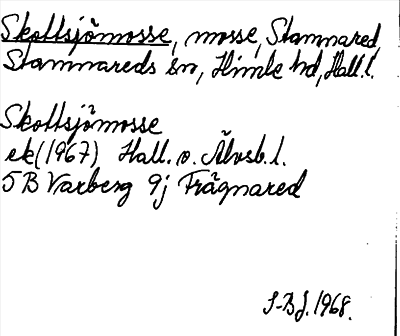 Skottsjömosse, mosse, Stamnared,
Stamnareds sn, Himle hd, Hall. l.
Skottsjömosse
ek (1967) Hall. o. Älvsb. l.
5B Varberg 9j Frägnared
S-BJ. 1968.